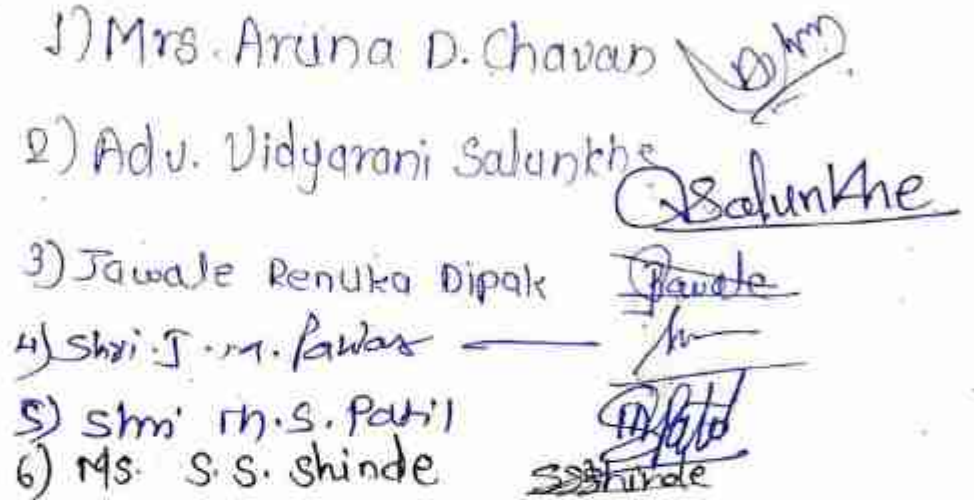 1) Mrs. Aruna D. Chavan
2) Adv. Vidyarani Salunkhe
Salunkhe
3) Jawale Renuka Dipak Jawale
4) Shri. J. M. Pawar
5) Shri M.S. Patil MPatil
6) Ms. S.S. Shinde SSShinde